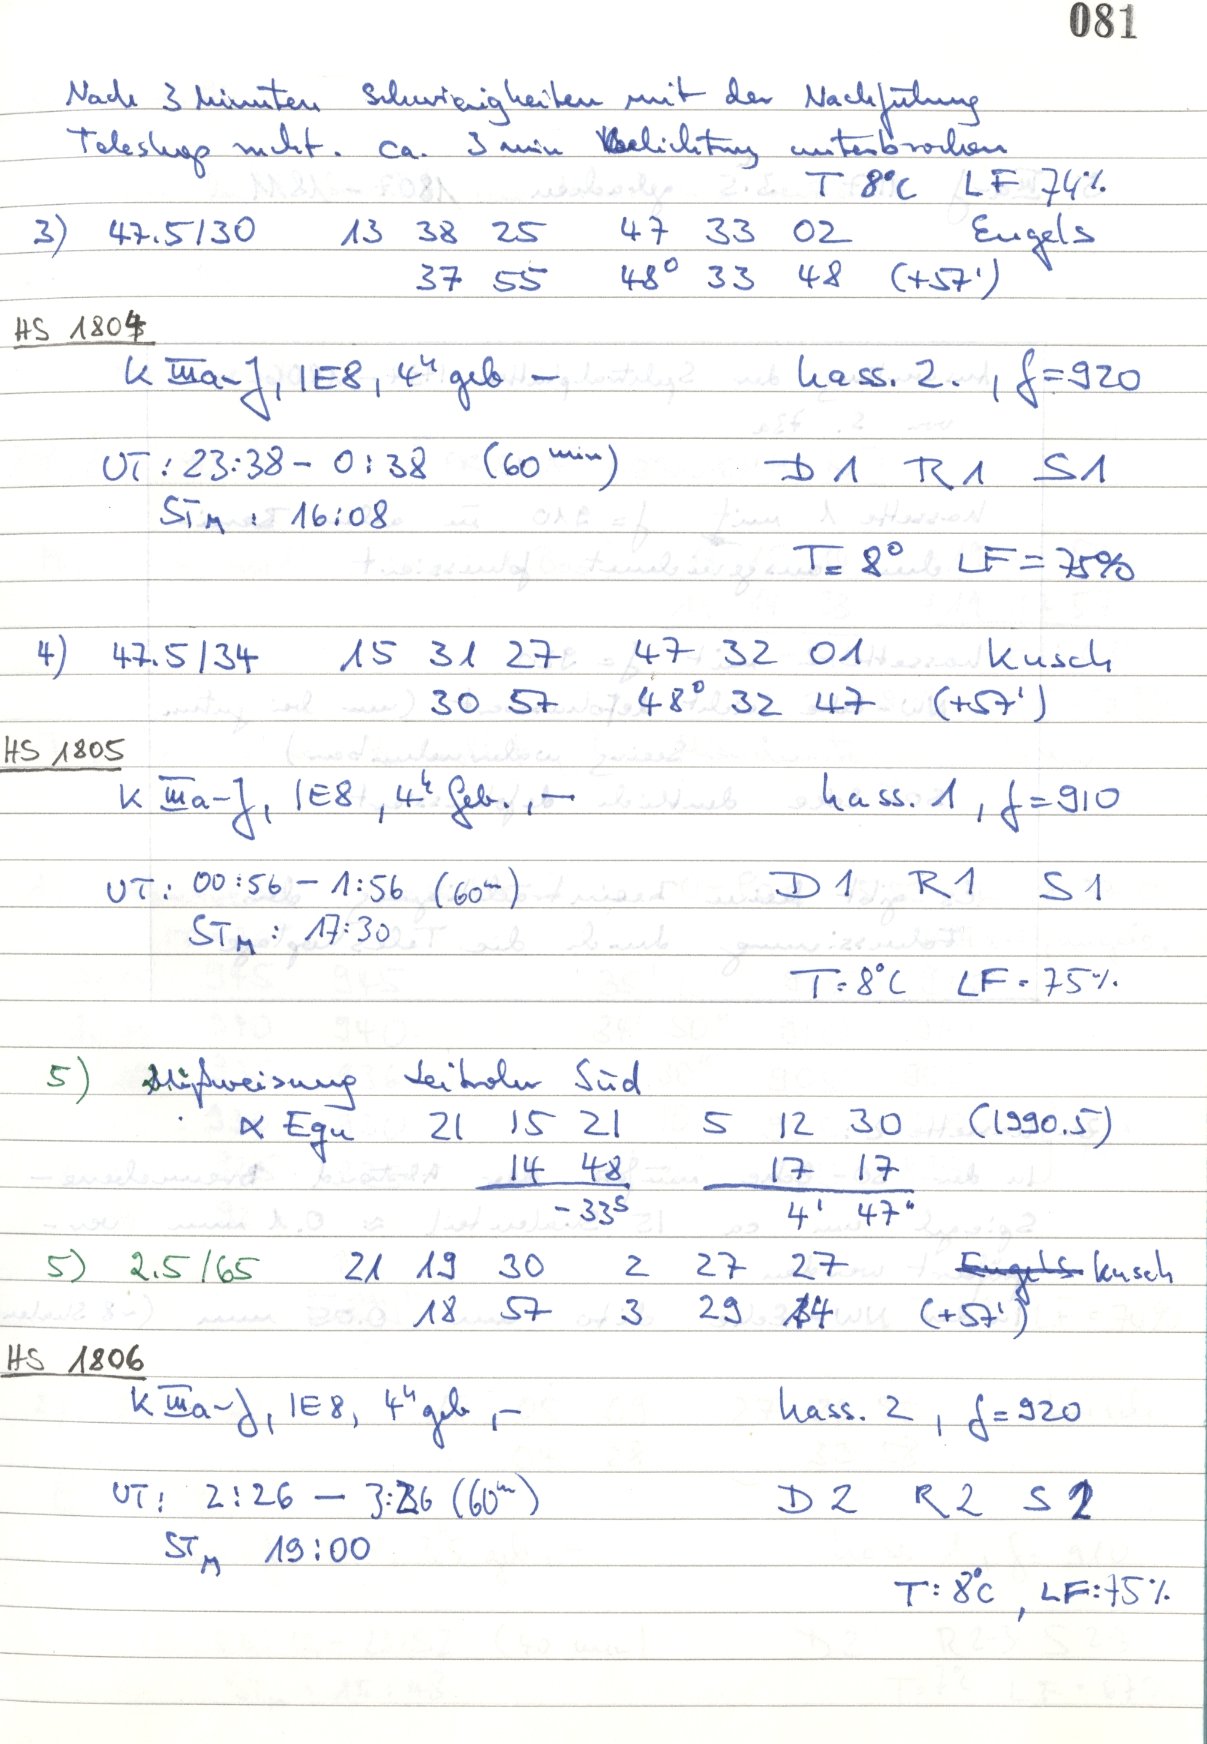 081
Nach 3 Minuten Schwierigkeiten mit der Nachführung
Teleskop nicht. ca. 3 min Belichtung unterbrochen
T 8°C LF 74%
3) 47.5/30 13 38 25 47 33 02 Engels
37 55 48° 33 48 (+57')
HS 1804
K IIIa-J, IE8, 4h geb – Kass. 2. , f=920
UT: 23:38 – 0:38 (60min) D1 R1 S1
STM : 16:08
T= 8° LF = 75%
4) 47.5/34 15 31 27 47 32 01 Kusch
30 57 48° 32 47 (+57')
HS 1805
K IIIa-J, IE8, 4h Geb., – Kass. 1 , f=910
UT: 00:56 – 1:56 (60m) D1 R1 S1
STM : 17:30
T=8°C LF = 75%
5) Mißweisung Leitrohr Süd
α Equ 21 15 21 5 12 30 (1990.5)
14 48 17 17
-33s 4' 47"
5) 2.5/65 21 19 30 2 27 27 Engels Kusch
18 57 3 29 14 (+57')
HS 1806
K IIIa-J, IE8, 4h geb, – Kass. 2 , f=920
UT: 2:26 – 3:26 (60m) D2 R2 S2
STM 19:00
T: 8°C , LF: 75%